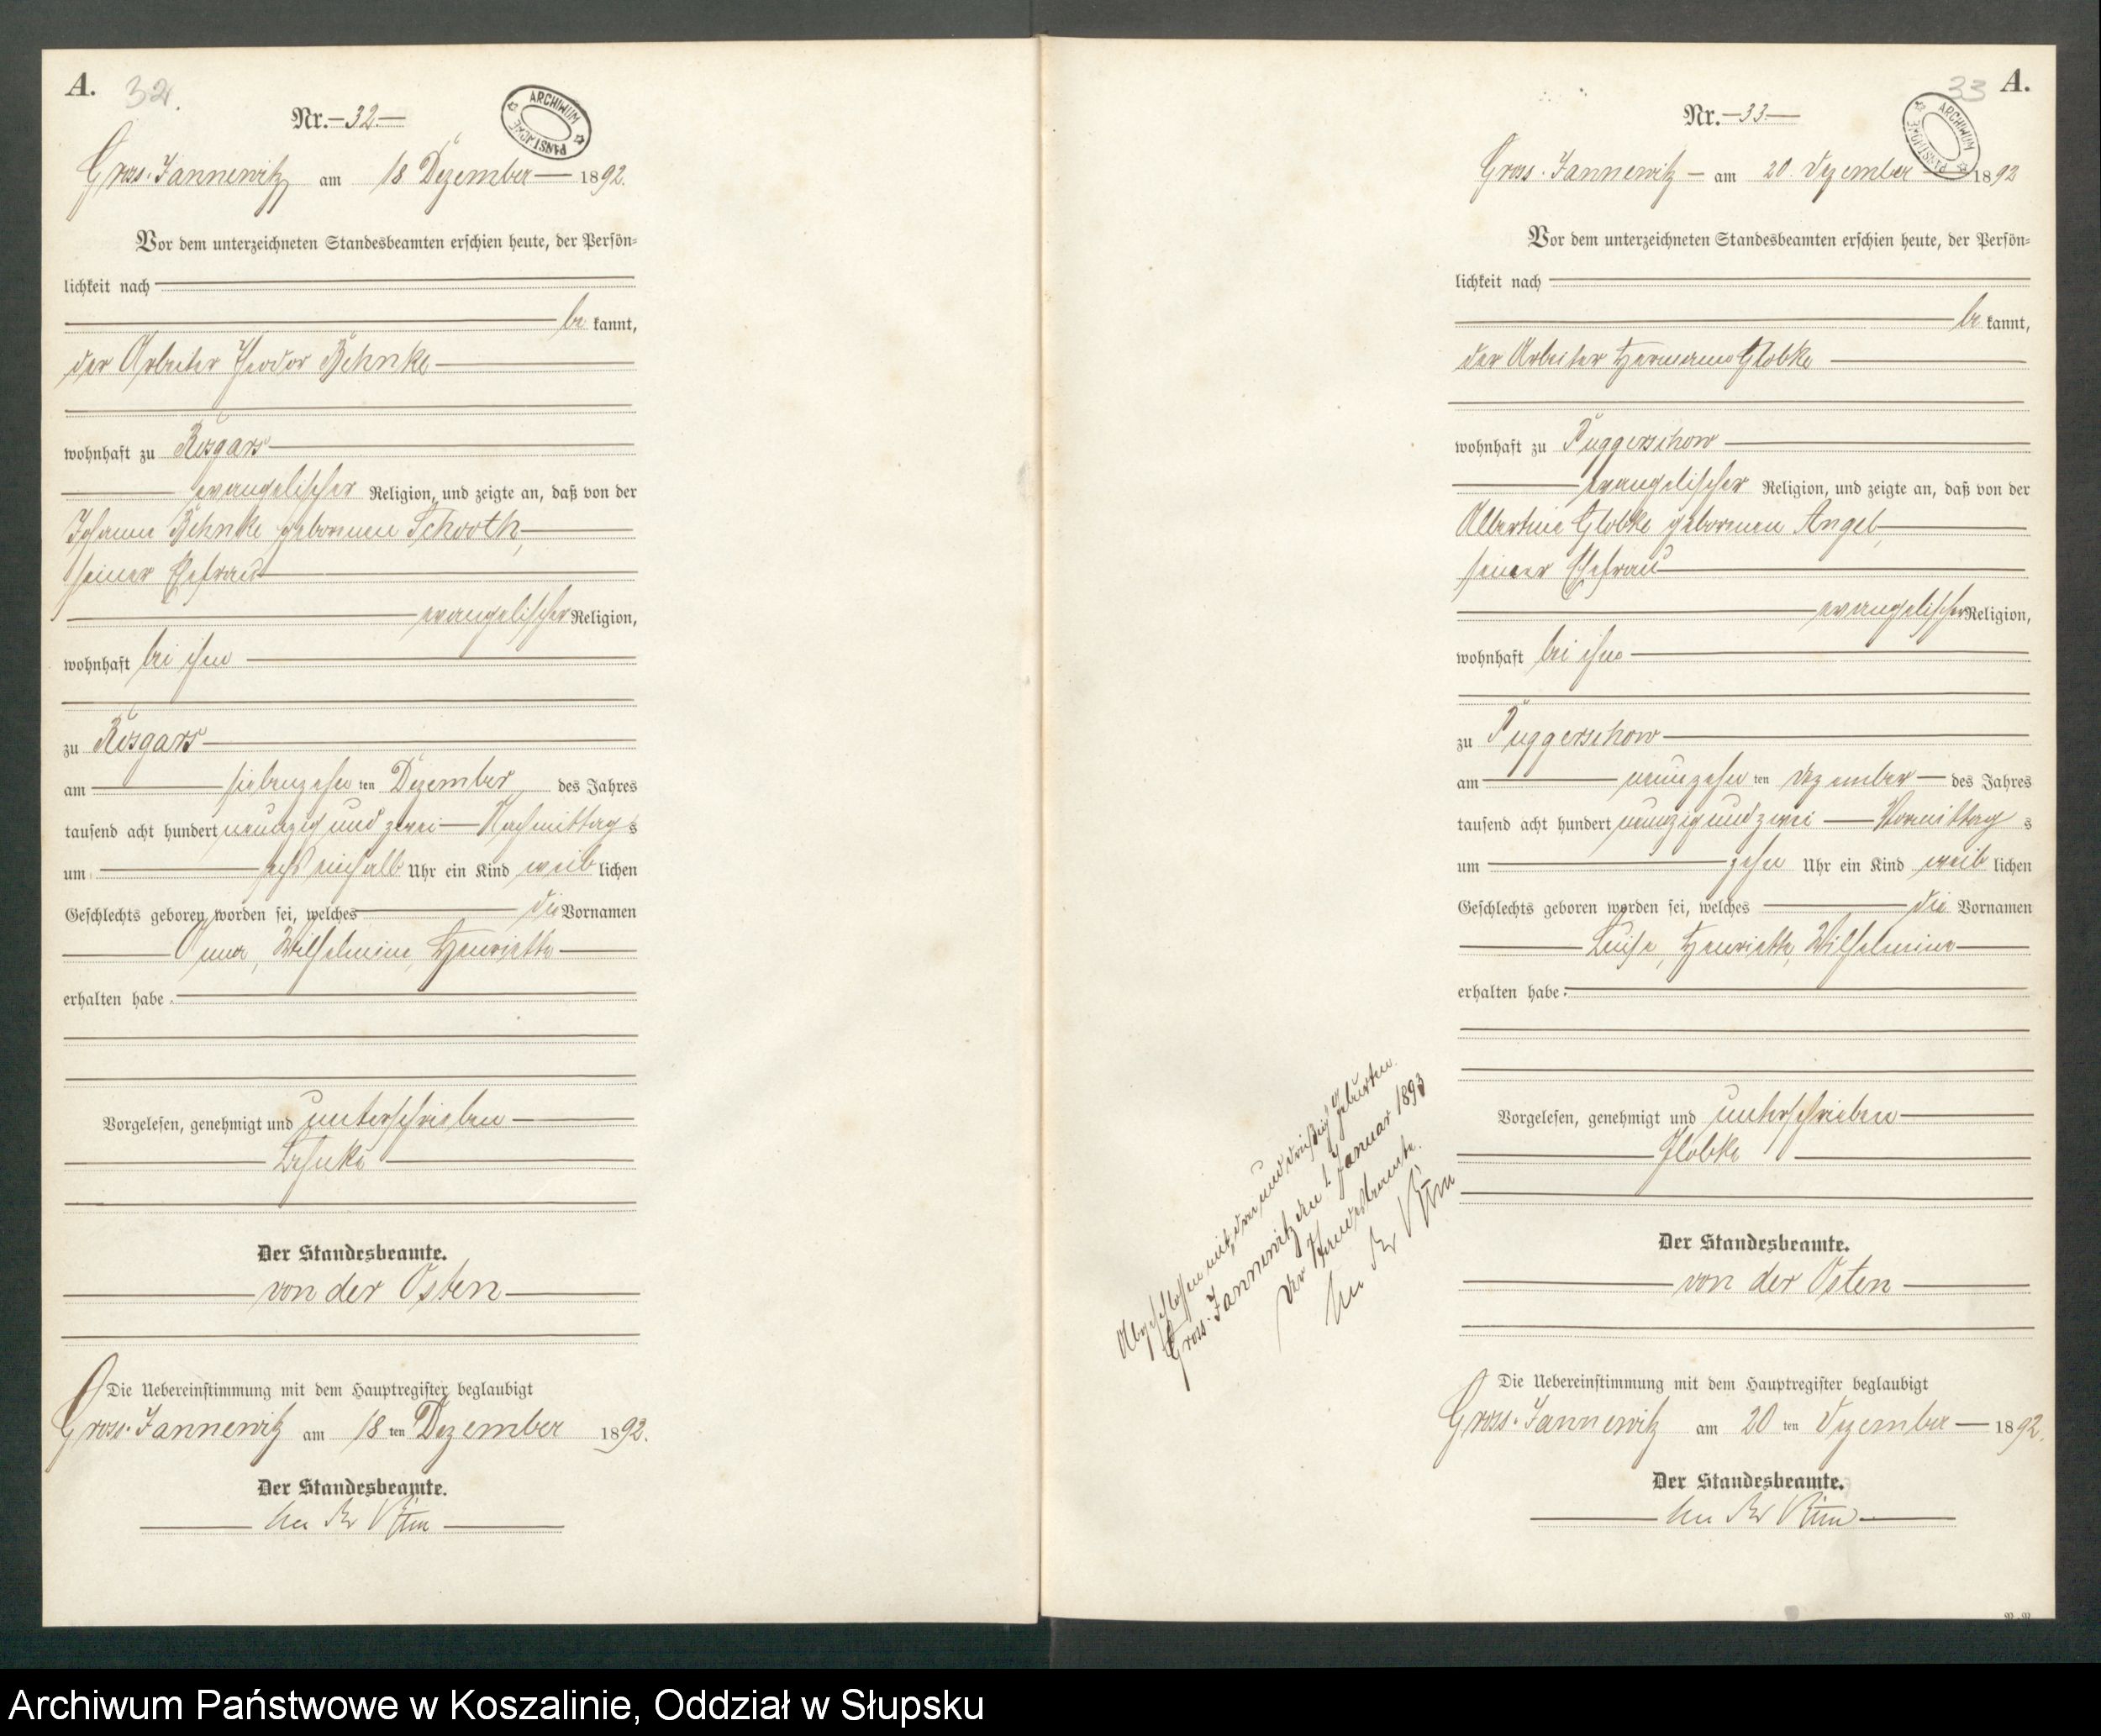 A. 32.
Nr. 32
ARCHIWUM PAŃSTWOWE
Gross-Jannewitz am 18 Dezember 1892.
Vor dem unterzeichneten Standesbeamten erschien heute, der Persön-
lichkeit nach
be kannt,
der Arbeiter Theodor Behnke
wohnhaft zu Rosgars
evangelischer Religion, und zeigte an, daß von der
Johanne Behnke geborenen Schooth,
seiner Ehefrau
evangelischer Religion,
wohnhaft bei ihm
zu Rosgars
am siebenzehn ten Dezember des Jahres
tausend acht hundert neunzig und zwei Nachmittag s
um Uhr ein Kind weib lichen
Geschlechts geboren worden sei, welches die Vornamen
Anna, Wilhelmine, Henriette
erhalten habe.
Vorgelesen, genehmigt und unterschrieben
Behnke
Der Standesbeamte.
von der Osten
Die Uebereinstimmung mit dem Hauptregister beglaubigt
Gross-Jannewitz am 18 ten Dezember 1892.
Der Standesbeamte.
33 A.
Nr. 33
ARCHIWUM PAŃSTWOWE
Gross-Jannewitz am 20. Dezember 1892
Vor dem unterzeichneten Standesbeamten erschien heute, der Persön-
lichkeit nach
be kannt,
der Arbeiter Hermann Globke
wohnhaft zu Puggerschow
evangelischer Religion, und zeigte an, daß von der
Albertine Globke geborenen Angel,
seiner Ehefrau
evangelischer Religion,
wohnhaft bei ihm
zu Puggerschow
am neunzehn ten Dezember des Jahres
tausend acht hundert neunzig und zwei Vormittag s
um zehn Uhr ein Kind weib lichen
Geschlechts geboren worden sei, welches die Vornamen
Luise, Henriette, Wilhelmine
erhalten habe.
Vorgelesen, genehmigt und unterschrieben
Globke
Der Standesbeamte.
von der Osten
Die Uebereinstimmung mit dem Hauptregister beglaubigt
Gross-Jannewitz am 20 ten Dezember 1892.
Der Standesbeamte.
Abgeschlossen mit drei und dreißig Geburten.
Gross-Jannewitz den 1. Januar 1893
Der Standesbeamte.
Archiwum Państwowe w Koszalinie, Oddział w Słupsku